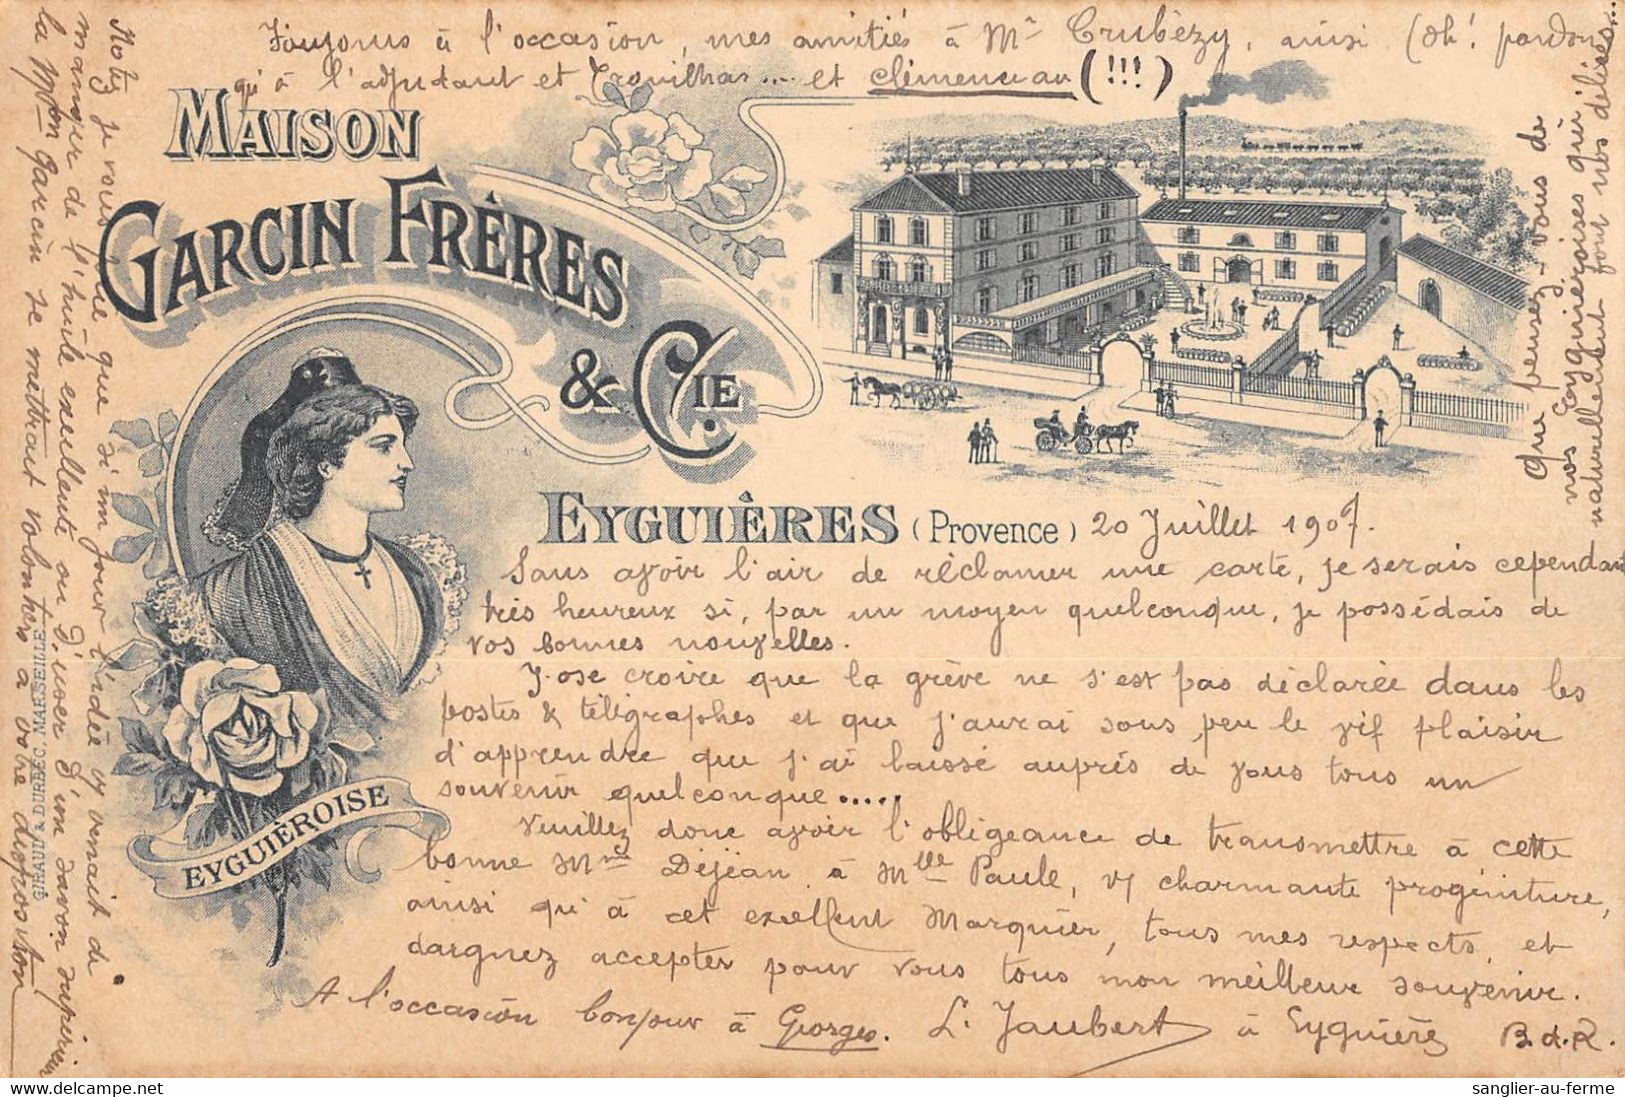 Toujours à l'occasion, mes amitiés à Mr Crubézy, ainsi (oh! pardon
qu'à l'adjudant et Trouilhas.... et Clémenceau (!!!)
MAISON
GARCIN FRÈRES
& Cie
EYGUIÈRES (Provence) 20 Juillet 1907.
Sans avoir l'air de réclamer une carte, je serais cependant
très heureux si, par un moyen quelconque, je possédais de
vos bonnes nouvelles.
J'ose croire que la grève ne s'est pas déclarée dans les
postes & télégraphes et que j'aurai sous peu le vif plaisir
d'apprendre que j'ai laissé auprès de vous tous un
souvenir quelconque.....
Veuillez donc avoir l'obligeance de transmettre à cette
bonne Mme Déjean, à Mlle Paule, sa charmante progéniture,
ainsi qu'à cet excellent Marquier, tous mes respects, et
daignez accepter pour vous tous mon meilleur souvenir.
A l'occasion bonjour à Georges. L. Jaubert à Eyguières B.d.R.
EYGUIÈROISE
GIRAUD & DURBEC, MARSEILLE
Notez je vous prie que si un jour l'idée vs venait de
manger de l'huile excellente ou d'user d'un savon supérieur
la Mson Garcin se mettrait volontiers à votre disposition
Que pensez-vous de
nos Eyguiéroises qui
naturellement font nos délices...
sanglier-au-ferme